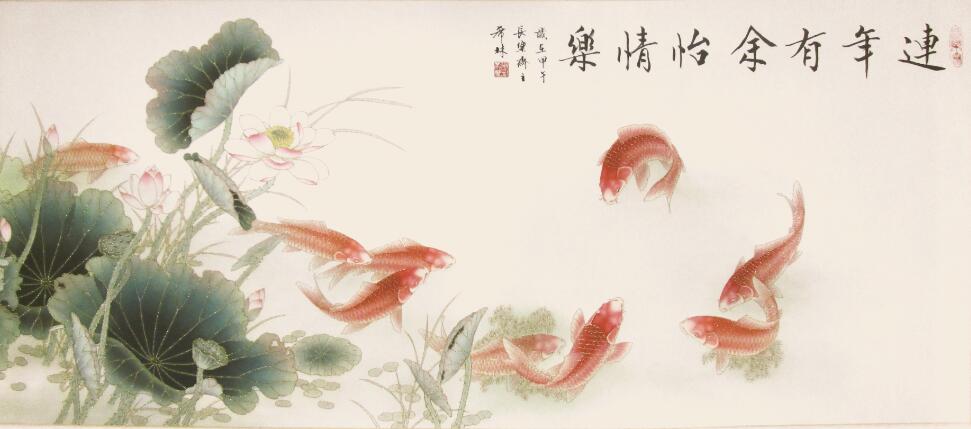 連年有余怡情樂
歲在甲午
長樂齋主